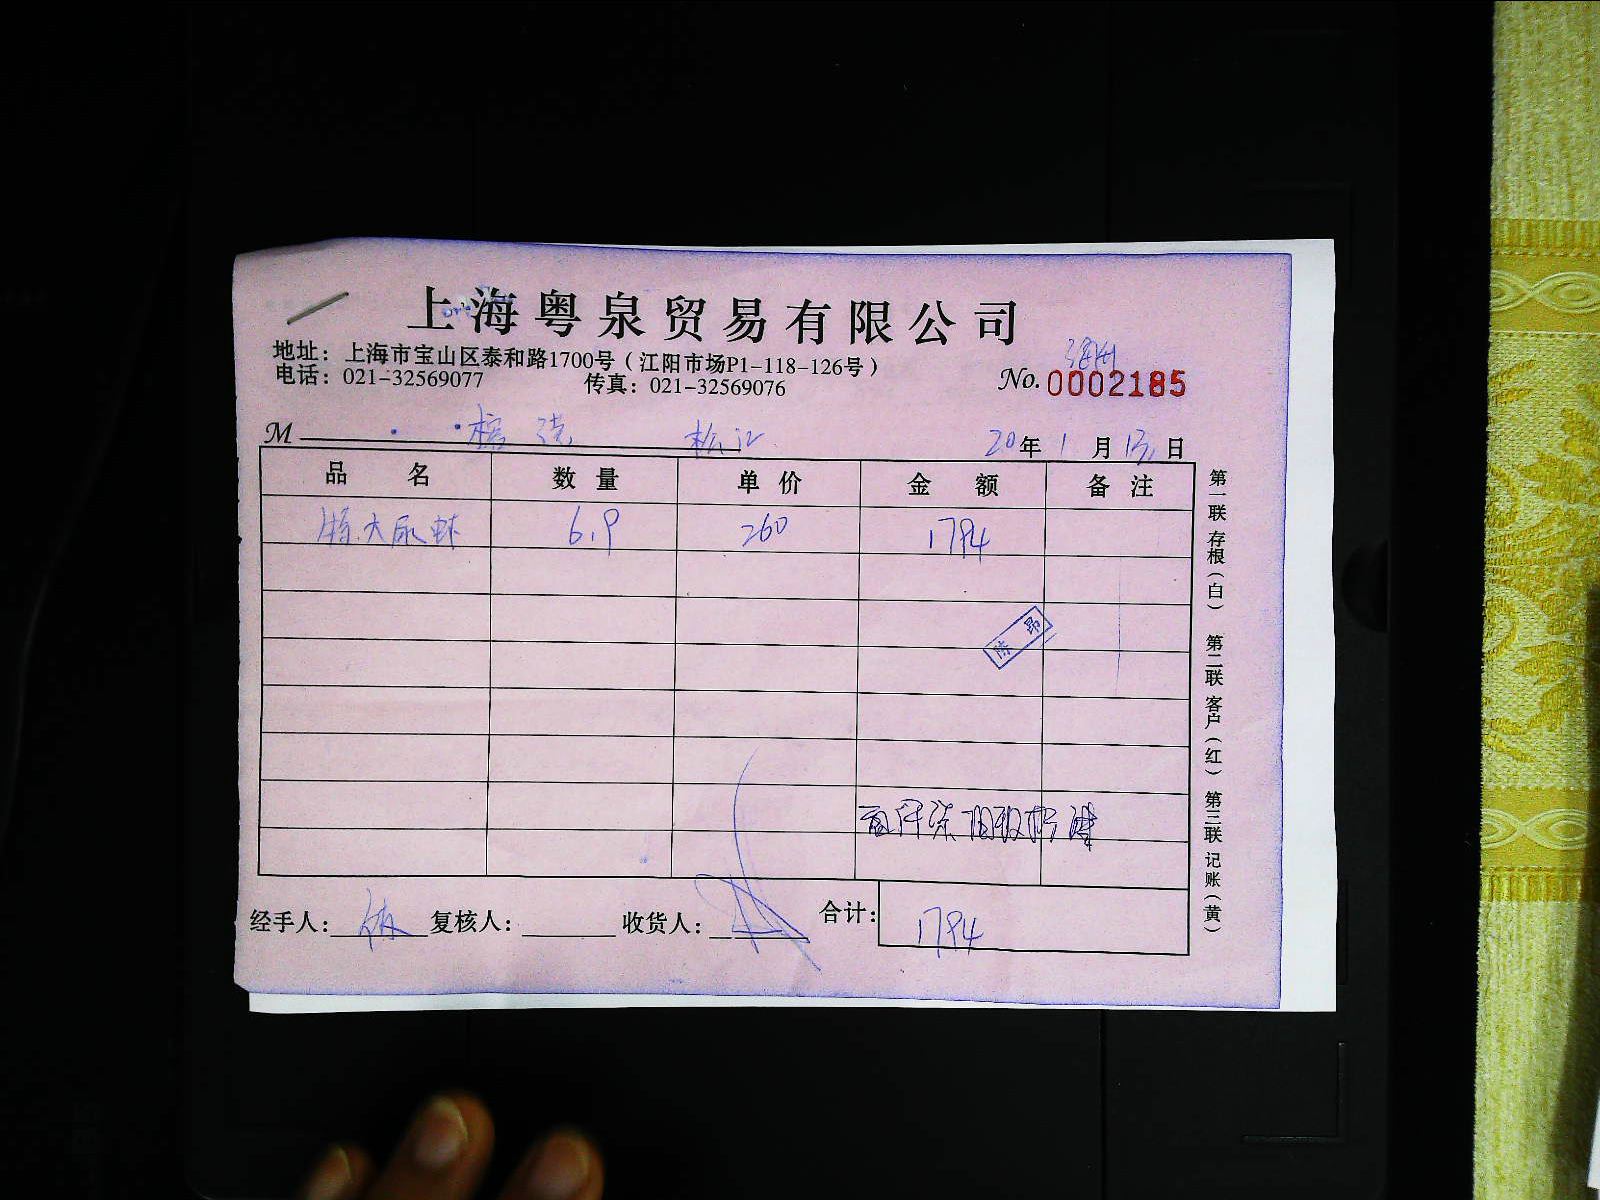 上海粤泉贸易有限公司
地址：上海市宝山区泰和路1700号（江阳市场P1-118-126号）
电话：021-32569077 传真：021-32569076
No.0002185
M 松江 20年1月13日
品名 数量 单价 金额 备注
特大尿虾 6.9 260 1794
陈昂
经手人： 复核人： 收货人： 合计：1794
第一联 存根（白） 第二联 客户（红） 第三联 记账（黄）